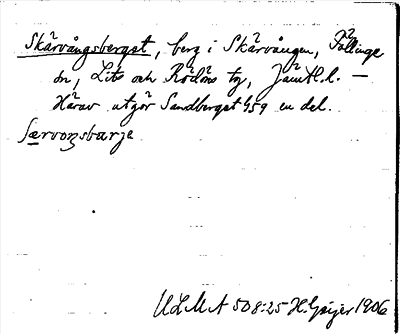 Skärvångsberget, berg i Skärvången, Föllinge
sn, Lits och Rödöns tg, Jämtl. l. —
Härav utgör Sandberget 459 en del.
særvoŋsbarje
ULMA 508:25 H. Geijer 1906